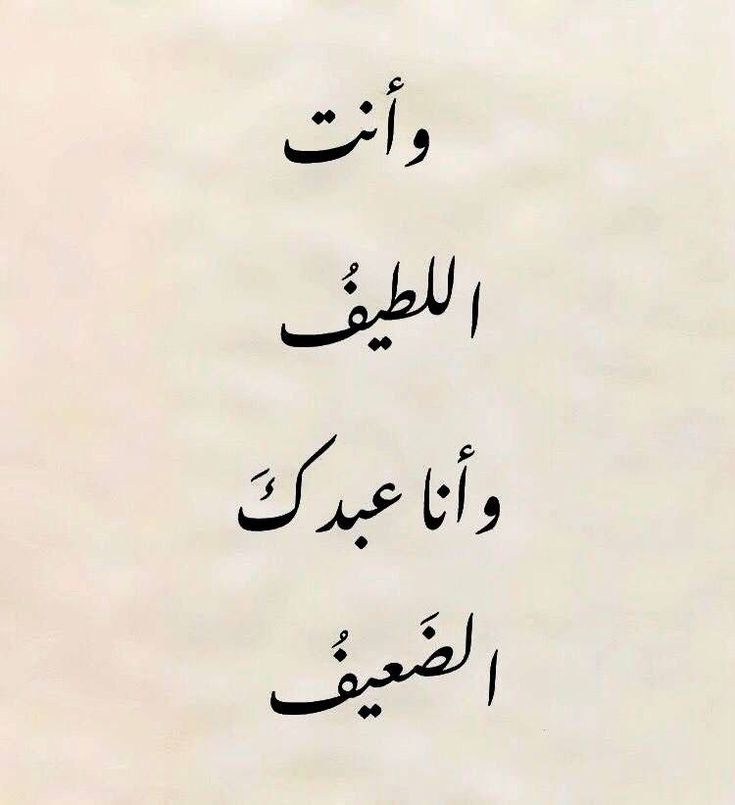 وأنت
اللطيفُ
وأنا عبدكَ
الضَعيفُ